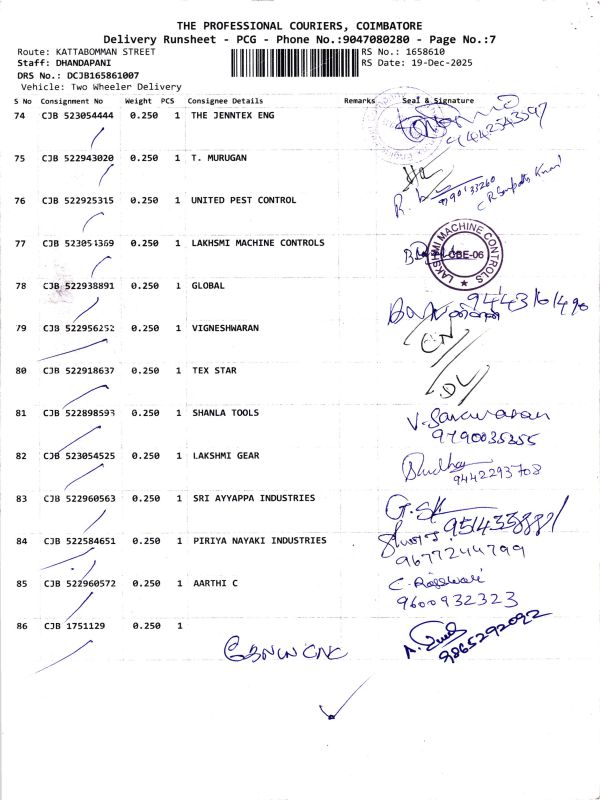 THE PROFESSIONAL COURIERS, COIMBATORE
Delivery Runsheet - PCG - Phone No.:9047080280 - Page No.:7
Route: KATTABOMMAN STREET RS No.: 1658610
Staff: DHANDAPANI RS Date: 19-Dec-2025
DRS No.: DCJB165861007
Vehicle: Two Wheeler Delivery
S No Consignment No Weight PCS Consignee Details Remarks Seal & Signature
74 CJB 523054444 0.250 1 THE JENNTEX ENG
9442543597
75 CJB 522943020 0.250 1 T. MURUGAN
76 CJB 522925315 0.250 1 UNITED PEST CONTROL
77 CJB 523054369 0.250 1 LAKHSMI MACHINE CONTROLS
LAKSHMI MACHINE CONTROLS CBE-06
78 CJB 522938891 0.250 1 GLOBAL
79 CJB 522956252 0.250 1 VIGNESHWARAN
80 CJB 522918637 0.250 1 TEX STAR
DL
81 CJB 522898593 0.250 1 SHANLA TOOLS V. Saravanan
9790035355
82 CJB 523054525 0.250 1 LAKSHMI GEAR Sudha
9442293708
83 CJB 522960563 0.250 1 SRI AYYAPPA INDUSTRIES G.SK
84 CJB 522584651 0.250 1 PIRIYA NAYAKI INDUSTRIES
9677244799
85 CJB 522960572 0.250 1 AARTHI C C. Rajeswari
9600932323
86 CJB 1751129 0.250 1
9865292092